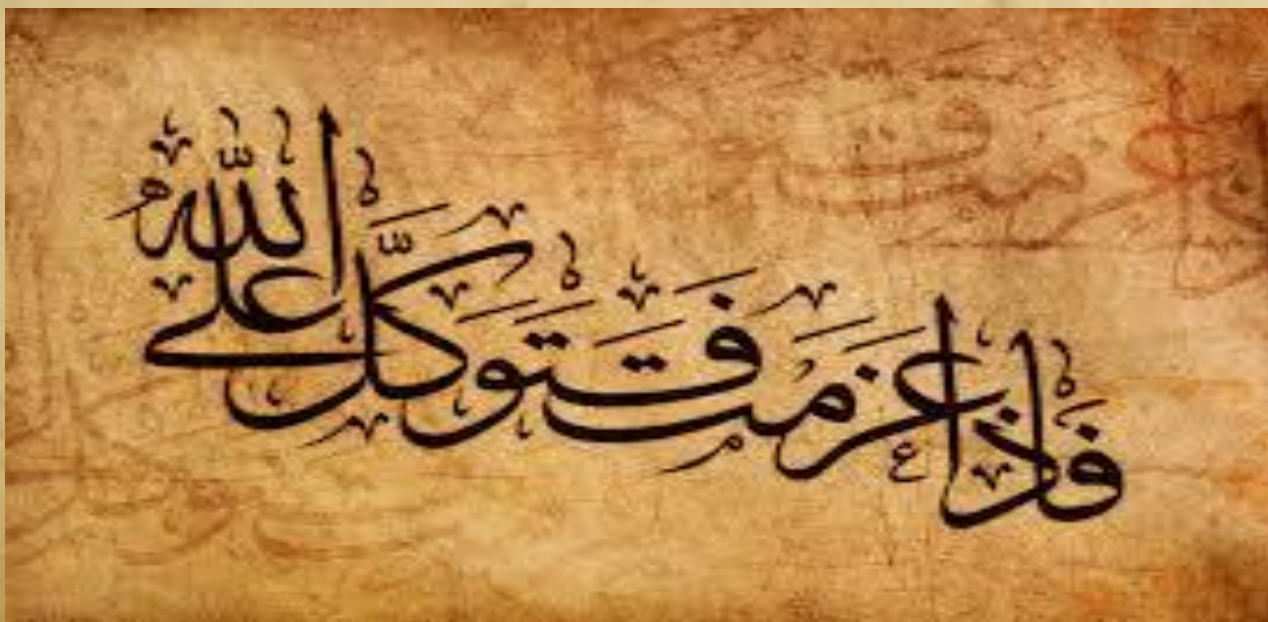 فَإِذَا عَزَمْتَ فَتَوَكَّلْ عَلَى اللَّهِ